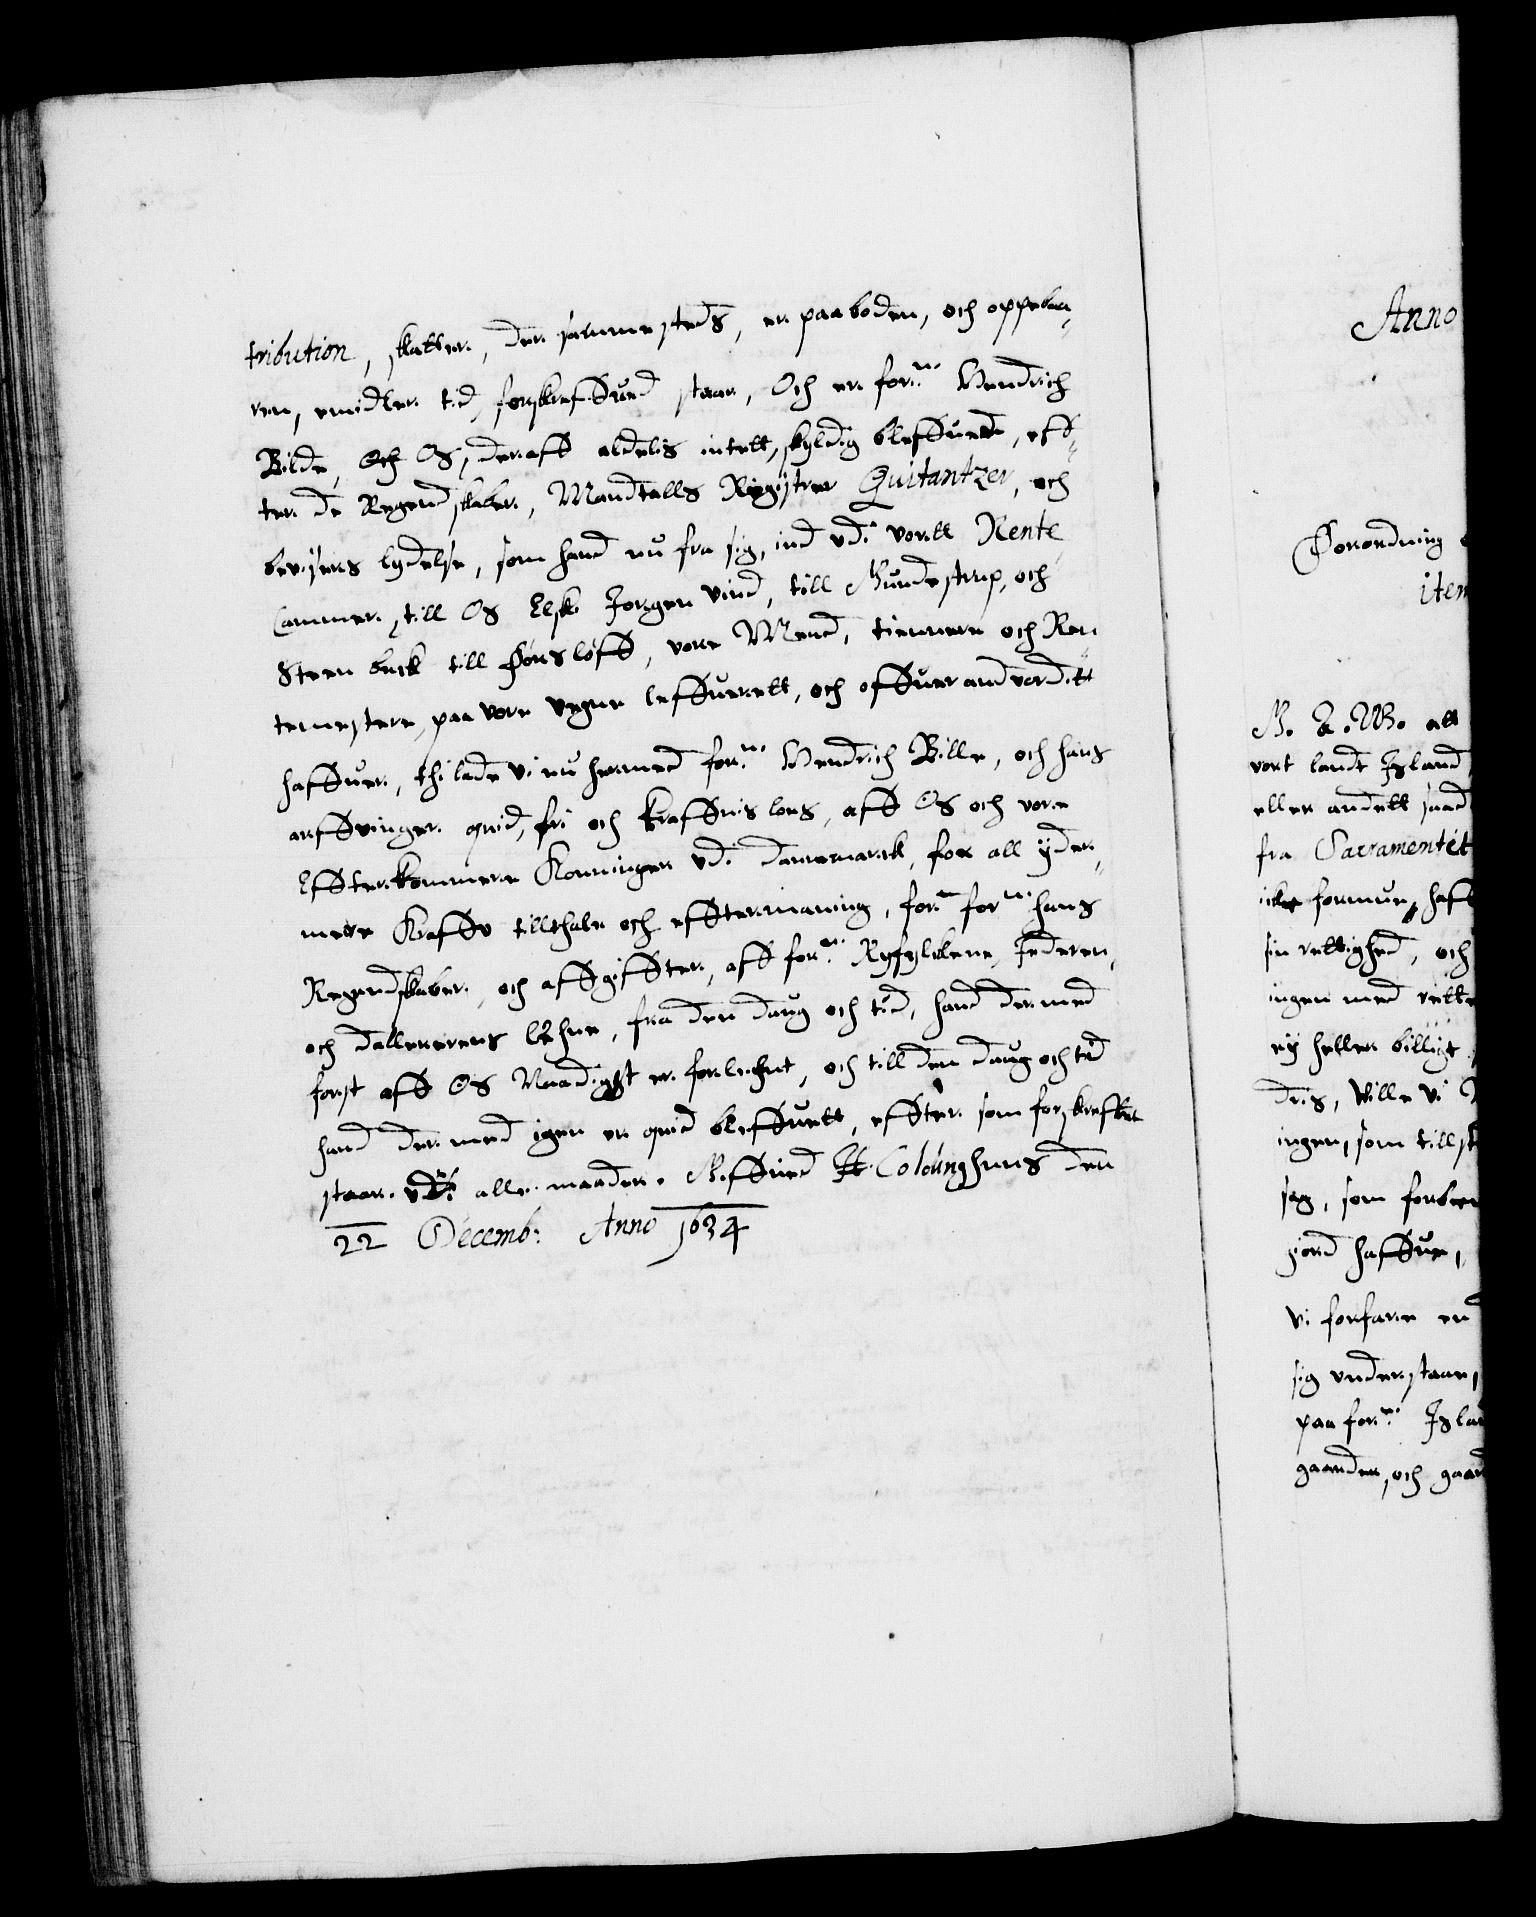 tribution, skatter, der sammesteds, er paaboden, och oppebaa¬
ren, emidler tid, forskreffued staar, Och er for:ne Hendrich
Bilde, Och Os, deraff aldelis intett, skyldig bleffuend, eff¬
ter de Regendskaber, Mandtalls Registrer Quitantzer, och
bevisers lydelse, som hand nu fra sig, ind udi vortt Rente
Cammer, till Os Elsk: Jorgen Vind, till Gundestrup, och
Steen beck till Førsløff, vore Mend, tiennere och Ren
temestere, paa vore vegne leffuerett, och offuerandvorditt
haffuer, thi lade vi nu hermed for:ne Hendrich Bille, och hans
arffvinger quid, fri och kraffuis løes, aff Os och vore
Effterkommere Konninger udi Danmarck, for all yder¬
mere Kraffv tillthale och efftermaning, for:ne hans
Regendskaber, och affgiffter, aff for:ne Ryfylckene, Jederen,
och Dallernerens lehne, fra den daug och tid, hand dermed
først aff Os Naadigst er forlehnt, och till den daug och tid
hand dermed igen er quid bleffuett, effter som forskreffuit
staar udi alle maader. Giffued Colding huus den
22 Decemb: Anno 1634
Anno
Forordning
item
G. A. W. att
vort landt Island,
eller andett
fra Sacramentet
icke formue, haff
sin rettighed, och
ingen med rette
ey heller billigt
dris, Wille vi
ingen, som tillst
sag, som forbe
giord haffue,
Vi forfare en
sig understaae,
paa for:ne Isla
gaarder, och gaar